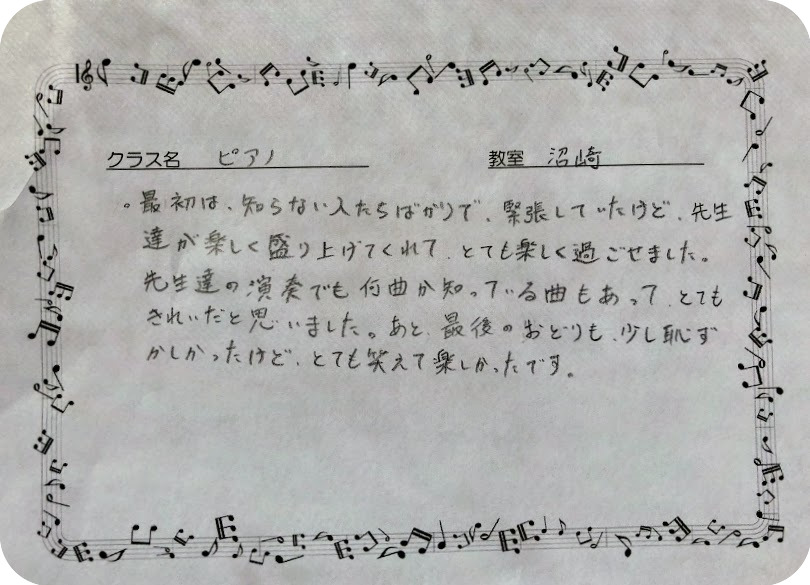 クラス名 ピアノ 教室 沼崎
。最初は、知らない人たちばかりで、緊張していたけど、先生
達が楽しく盛り上げてくれて、とても楽しく過ごせました。
先生達の演奏でも何曲か知っている曲もあって、とても
きれいだと思いました。あと、最後のおどりも、少し恥ず
かしかったけど、とても笑えて楽しかったです。